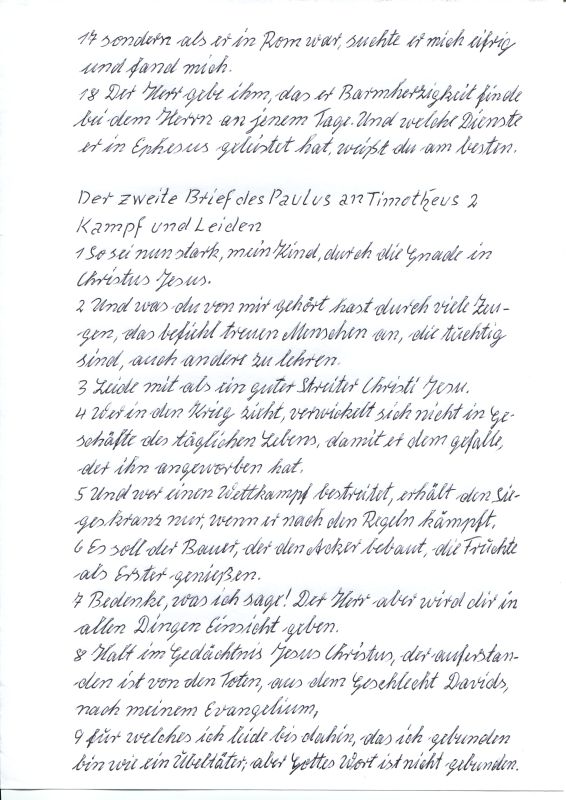 17 sondern als er in Rom war, suchte er mich eifrig
und fand mich.
18 Der Herr gebe ihm, das er Barmherzigkeit finde
bei dem Herrn an jenem Tage. Und welche Dienste
er in Ephesus geleistet hat, weißt du am besten.
Der zweite Brief des Paulus an Timotheus 2
Kampf und Leiden
1 So sei nun stark, mein Kind, durch die Gnade in
Christus Jesus.
2 Und was du von mir gehört hast durch viele Zeu-
gen, das befiehl treuen Menschen an, die tüchtig
sind, auch andere zu lehren.
3 Leide mit als ein guter Streiter Christi Jesu.
4 Wer in den Krieg zieht, verwickelt sich nicht in Ge-
schäfte des täglichen Lebens, damit er dem gefalle,
der ihn angeworben hat.
5 Und wer einen Wettkampf bestreitet, erhält den Sie-
geskranz nur, wenn er nach den Regeln kämpft.
6 Es soll der Bauer, der den Acker bebaut, die Früchte
als Erster genießen.
7 Bedenke, was ich sage! Der Herr aber wird dir in
allen Dingen Einsicht geben.
8 Halt im Gedächtnis Jesus Christus, der auferstan-
den ist von den Toten, aus dem Geschlecht Davids,
nach meinem Evangelium,
9 für welches ich leide bis dahin, das ich gebunden
bin wie ein Übeltäter; aber Gottes Wort ist nicht gebunden.